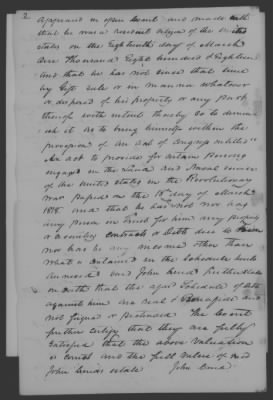 2.
appeared in open Court and made oath
that he was a resident citizen of the United
States on the Eighteenth day of March
One Thousand Eight hundred & Eighteen
and that he has not since that time
by Gift sale or in manner whatever
disposed of his property or any part
thereof with intent thereby so to diminish
it as to bring himself within the
provision of an act of Congress entitled "
An act to provide for certain Persons
engaged in the Land and Naval service
of the United States in the Revolutionary
War passed on the 18th day of March
1818 and that he has not nor has
any person in Trust for him any property
or securities contracts or debts due to him
nor has he any income other than
what is contained in the Schedule hereto
annexed and John further states
on oath that this Schedule of debts
against him are real &
not feigned or pretended The Court
further certify that they are fully
satisfied that the above Valuation
is correct and the full value of said
John estate John